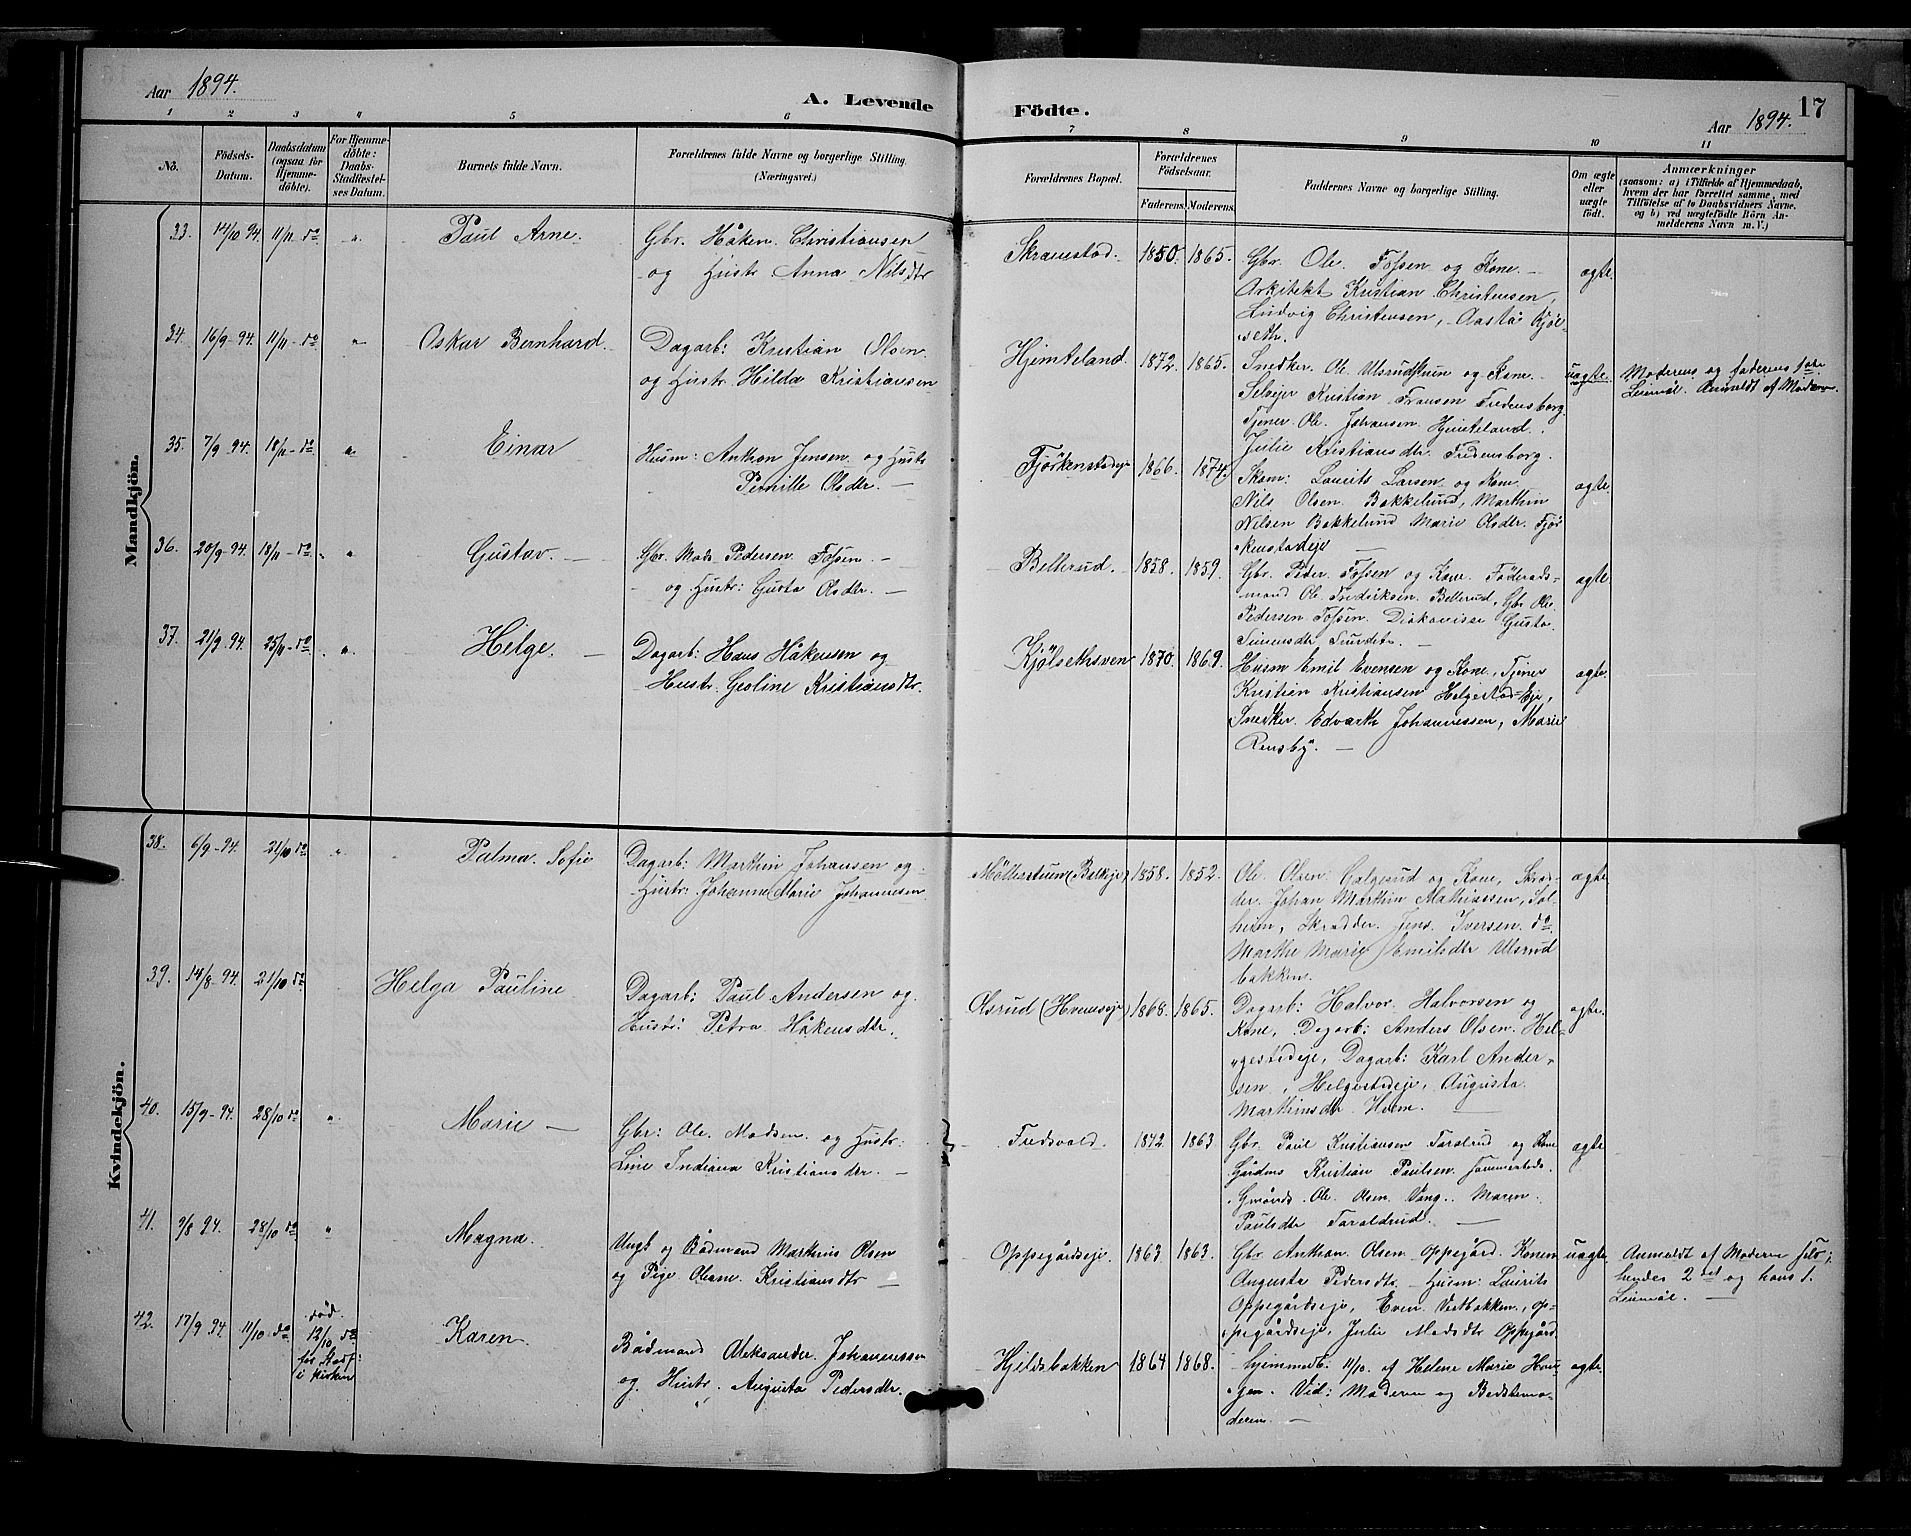 Aar 1894.
A. Levende
Födte.
Aar 1894.
17
1 2 3 4 5 6 7 8 9 10 11
No.
Födsels-
Datum.
Daabsdatum
(ogsaa for
Hjemme-
döbte).
For Hjemme-
döbte:
Daabs-
Stadfæstel-
ses Datum.
Barnets fulde Navn.
Forældrenes fulde Navne og borgerlige Stilling.
(Næringsvei.)
Forældrenes Bopæl.
Forældrenes
Födselsaar.
Faderens. Moderens.
Faddernes Navne og borgerlige Stilling.
Om ægte
eller
uægte
födt.
Anmærkninger
(saasom: a) i Tilfælde af Hjemmedaab,
hvem der har forrettet samme, med
Tilföielse af to Daabsvidners Navne,
og b) ved uægtefödte Börn An-
melderens Navn m. V.)
Mandkjön.
33. 14/10 94. 11/11 do " Paul Arne.
Gbr. Håken Christiansen
og Hustr Anna Nilsdtr
Skramstad. 1850. 1865.
Gbr. Ole Fossen og Kone. —
Arkitekt Kristian Christensen,
Ludvig Christensen, Aasta Kjöl-
seth.
ægte.
34. 16/9 - 94. 11/11 - do " Oskar Bernhard.
Dagarb: Kristian Olsen
og Hustr Hilda Kristiansen
Hjemteland. 1872. 1865.
Snedker Ol. Ulsrudstuen og Kone. —
Selveier Kristian Fransen Fredensborg
Tjener Ole Johansen Hjemteland.
Julie Kristiansdtr Fredensborg.
uægte.
Moderens og faderens
Leiermål. Anmeldt af Moderen.
35. 7/9 - 94. 18/11 - do " Einar
Husm: Anthon Jensen og Hustr
Pernille Olsdtr. —
Fjörkenstadeje 1866. 1874.
Skom: Laurits Larsen og Kone
Nils Olsen Bakkelund, Marthin
Nilsen Bakkelund Marie Olsdtr. Fjör
kenstadeje —
ægte.
36. 20/9 - 94. 18/11 - do " Gustav. —
Gbr. Mads Pedersen Fossen. —
og Hustr: Gusta Olsdtr. —
Bellerud. 1858. 1859.
Gbr. Peder Fossen og Kone. Föderads-
mand Ole Fredriksen Bellerud, Gbr Ole
Pedersen Fossen. Diakonisse Gusta
Simensdtr
ægte
37. 21/9 - 94. 25/11 - do " Helge. —
Dagarb: Hans Håkensen og
Hustr. Geoline Kristiansdtr.
Kjölsethsven 1870. 1869.
Husm Emil Evensen og Kone, Tjener
Kristian Kristiansen Helgestad-Eje,
Snedker Edvarth Johannessen, Marie
Rensby. —
ægte.
Kvindekjön.
38. 6/9 - 94. 21/10 do " Palma Sofie
Dagarb: Marthin Johansen og
Hustr: Johanne Marie Johannesen
Möllerstuen (Balkeje) 1858. 1852.
Ole Olsen Galgerud og Kone, Skræd-
der Johan Marthin Mathiassen, Sol-
heim, Skrædder Jens Iversen do
Marthe Marie Emilsdtr Ulsrud
bakken.
ægte
39. 14/8 - 94. 21/10 do Helga Pauline
Dagarb: Paul Andersen og
Hustr: Petra Håkensdtr.
Olsrud (Hvemseje) 1868. 1865.
Dagarb: Halvor Halvorsen og
Kone, Dagarb: Anders Olsen. Hel-
gestadeje, Dagarb: Karl Ander-
sen, Helgestadeje, Augusta
Marthinsdtr Hvem. —
ægte.
40. 15/9 - 94. 28/10 do " Marie —
Gbr: Ole Madsen og Hustr:
Line Indiana Kristiansdtr. —
Fredsvold. 1842. 1863
Gbr Paul Kristiansen Taralrud og Kone
Gårdm Kristian Paulsen
Gmands Ole Olsen Vang. Maren
Paulsdtr Taraldrud. —
ægte
41. 3/8 94. 28/10 do " Magna.
Ungk og Bådmand Marthius Olsen
og Pige Oleane Kristiansdtr —
Oppegårdseje. 1863 1863.
Gbr Anthon Olsen Oppegård. Konen
Augusta Pedersdtr Husm: Laurits
Oppegårdseje, Even Vestbakken, op-
pegårdseje, Julie Madsdtr Oppegård.
uægte
Anmeldt af Moderen selv;
hendes 2det og hans 1.
Leiermål. —
42. 17/9 94 11/10 do
död.
12/10 do
för Stadf:
i Kirken
Karen
Bådmand Aleksander Johannessen
og Hustr. Augusta Pedersdtr.
Hjeldsbakken 1864 1868.
hjemmedb. 11/10 af Helene Marie Hau-
gen. Vid: Moderen og Bedstemo-
deren. —
ægte.